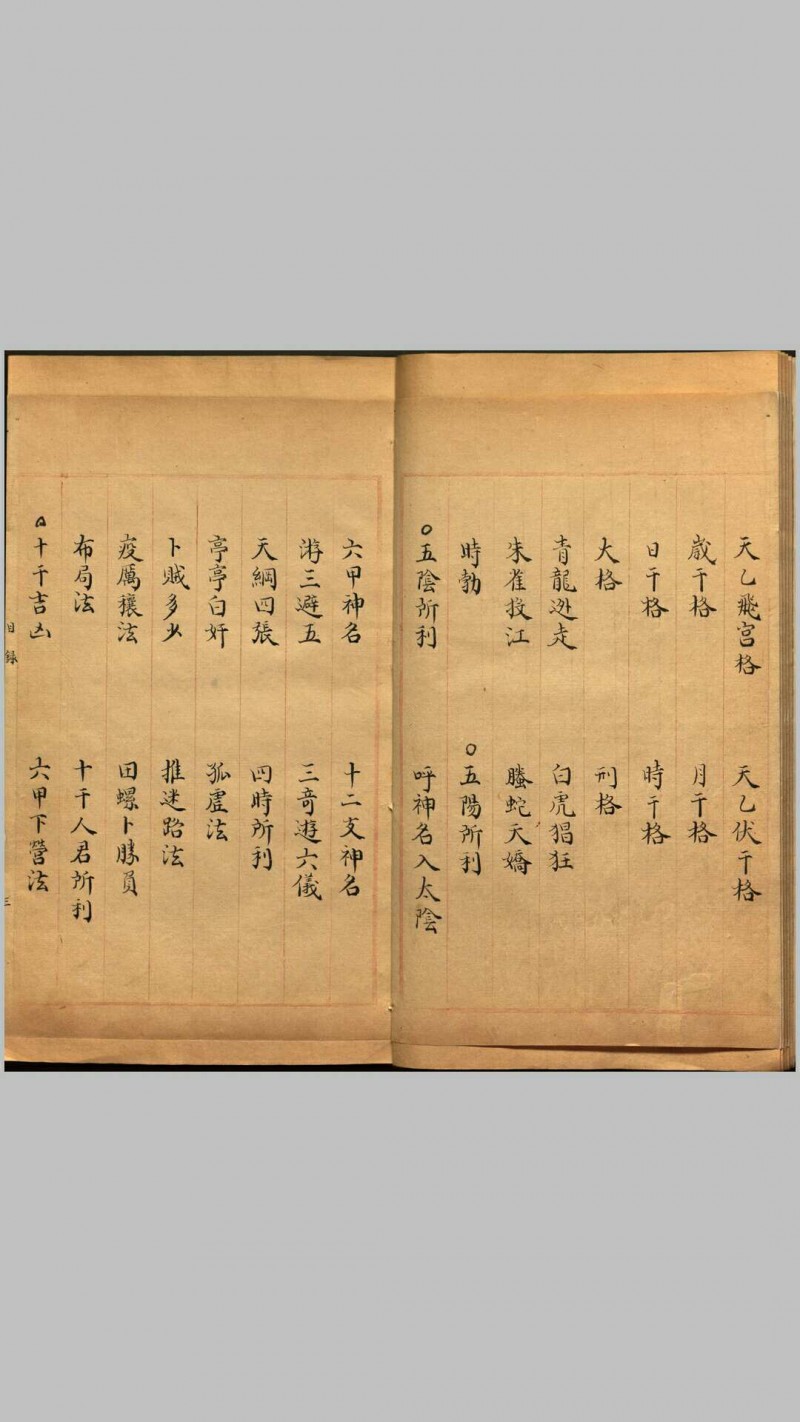 天乙飛宮格　天乙伏干格
歲干格　月干格
日干格　時干格
大格　刑格
青龍逃走　白虎猖狂
朱雀投江　螣蛇天矯
時勃　○五陽所利
○五陰所利　呼神名入太陰
六甲神名　十二支神名
游三避五　三奇遊六儀
天綱四張　四時所利
亭亭白奸　孤虛法
卜賊多少　推迷路法
疫厲穰法　田螺卜勝負
布局法　十干人君所利
△十干吉凶　六甲下營法
目錄　三